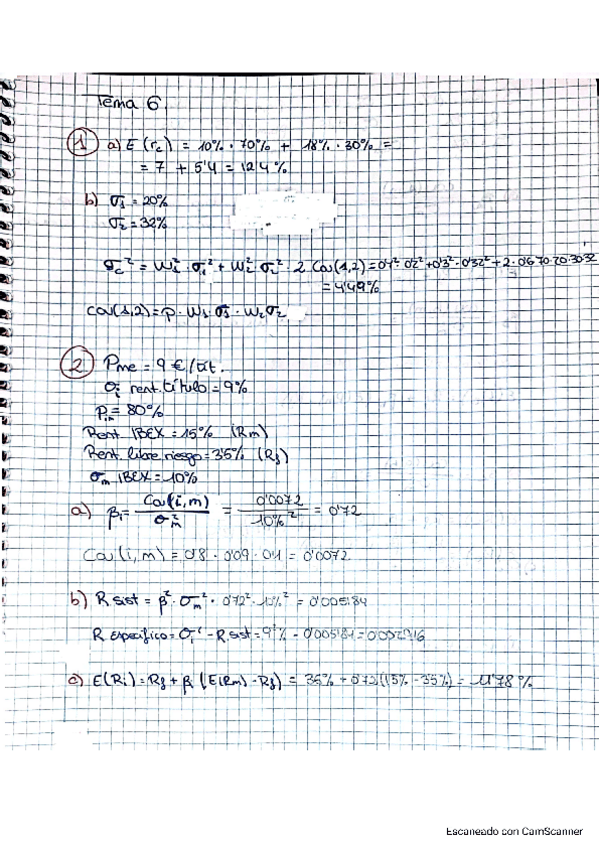 Tema 6.
1 a) E(rc) = 10% · 70% + 18% · 30% =
= 7 + 5'4 = 12'4%
b) σ1 = 20%
σ2 = 32%
σc² = W1² · σ1² + W2² · σ2² · 2 Cov(1,2) = 0'7² · 0'2² + 0'3² · 0'32² + 2 · 0'6 70·20·30·32
= 4'49%
Cov(1,2) = ρ · W1 · σ1 · W2 σ2
2 Pme = 9 €/tít.
σi rent. título = 9%
ρim = 80%
Rent. IBEX = 15% (Rm)
Rent. libre riesgo = 3'5% (Rf)
σm IBEX = 10%
a) βi = Cov(i,m) / σm² = 0'0072 / 10%² = 0'72
Cov(i,m) = 0'8 · 0'09 · 0'1 = 0'0072
b) R sist = β² · σm² · 0'72² · 10%² = 0'005184
R específico = σi² - R sist = 9²% - 0'005184 = 0'002916
c) E(Ri) = Rf + βi (E(Rm) - Rf) = 3'5% + 0'72(15% - 3'5%) = 11'78%
Escaneado con CamScanner